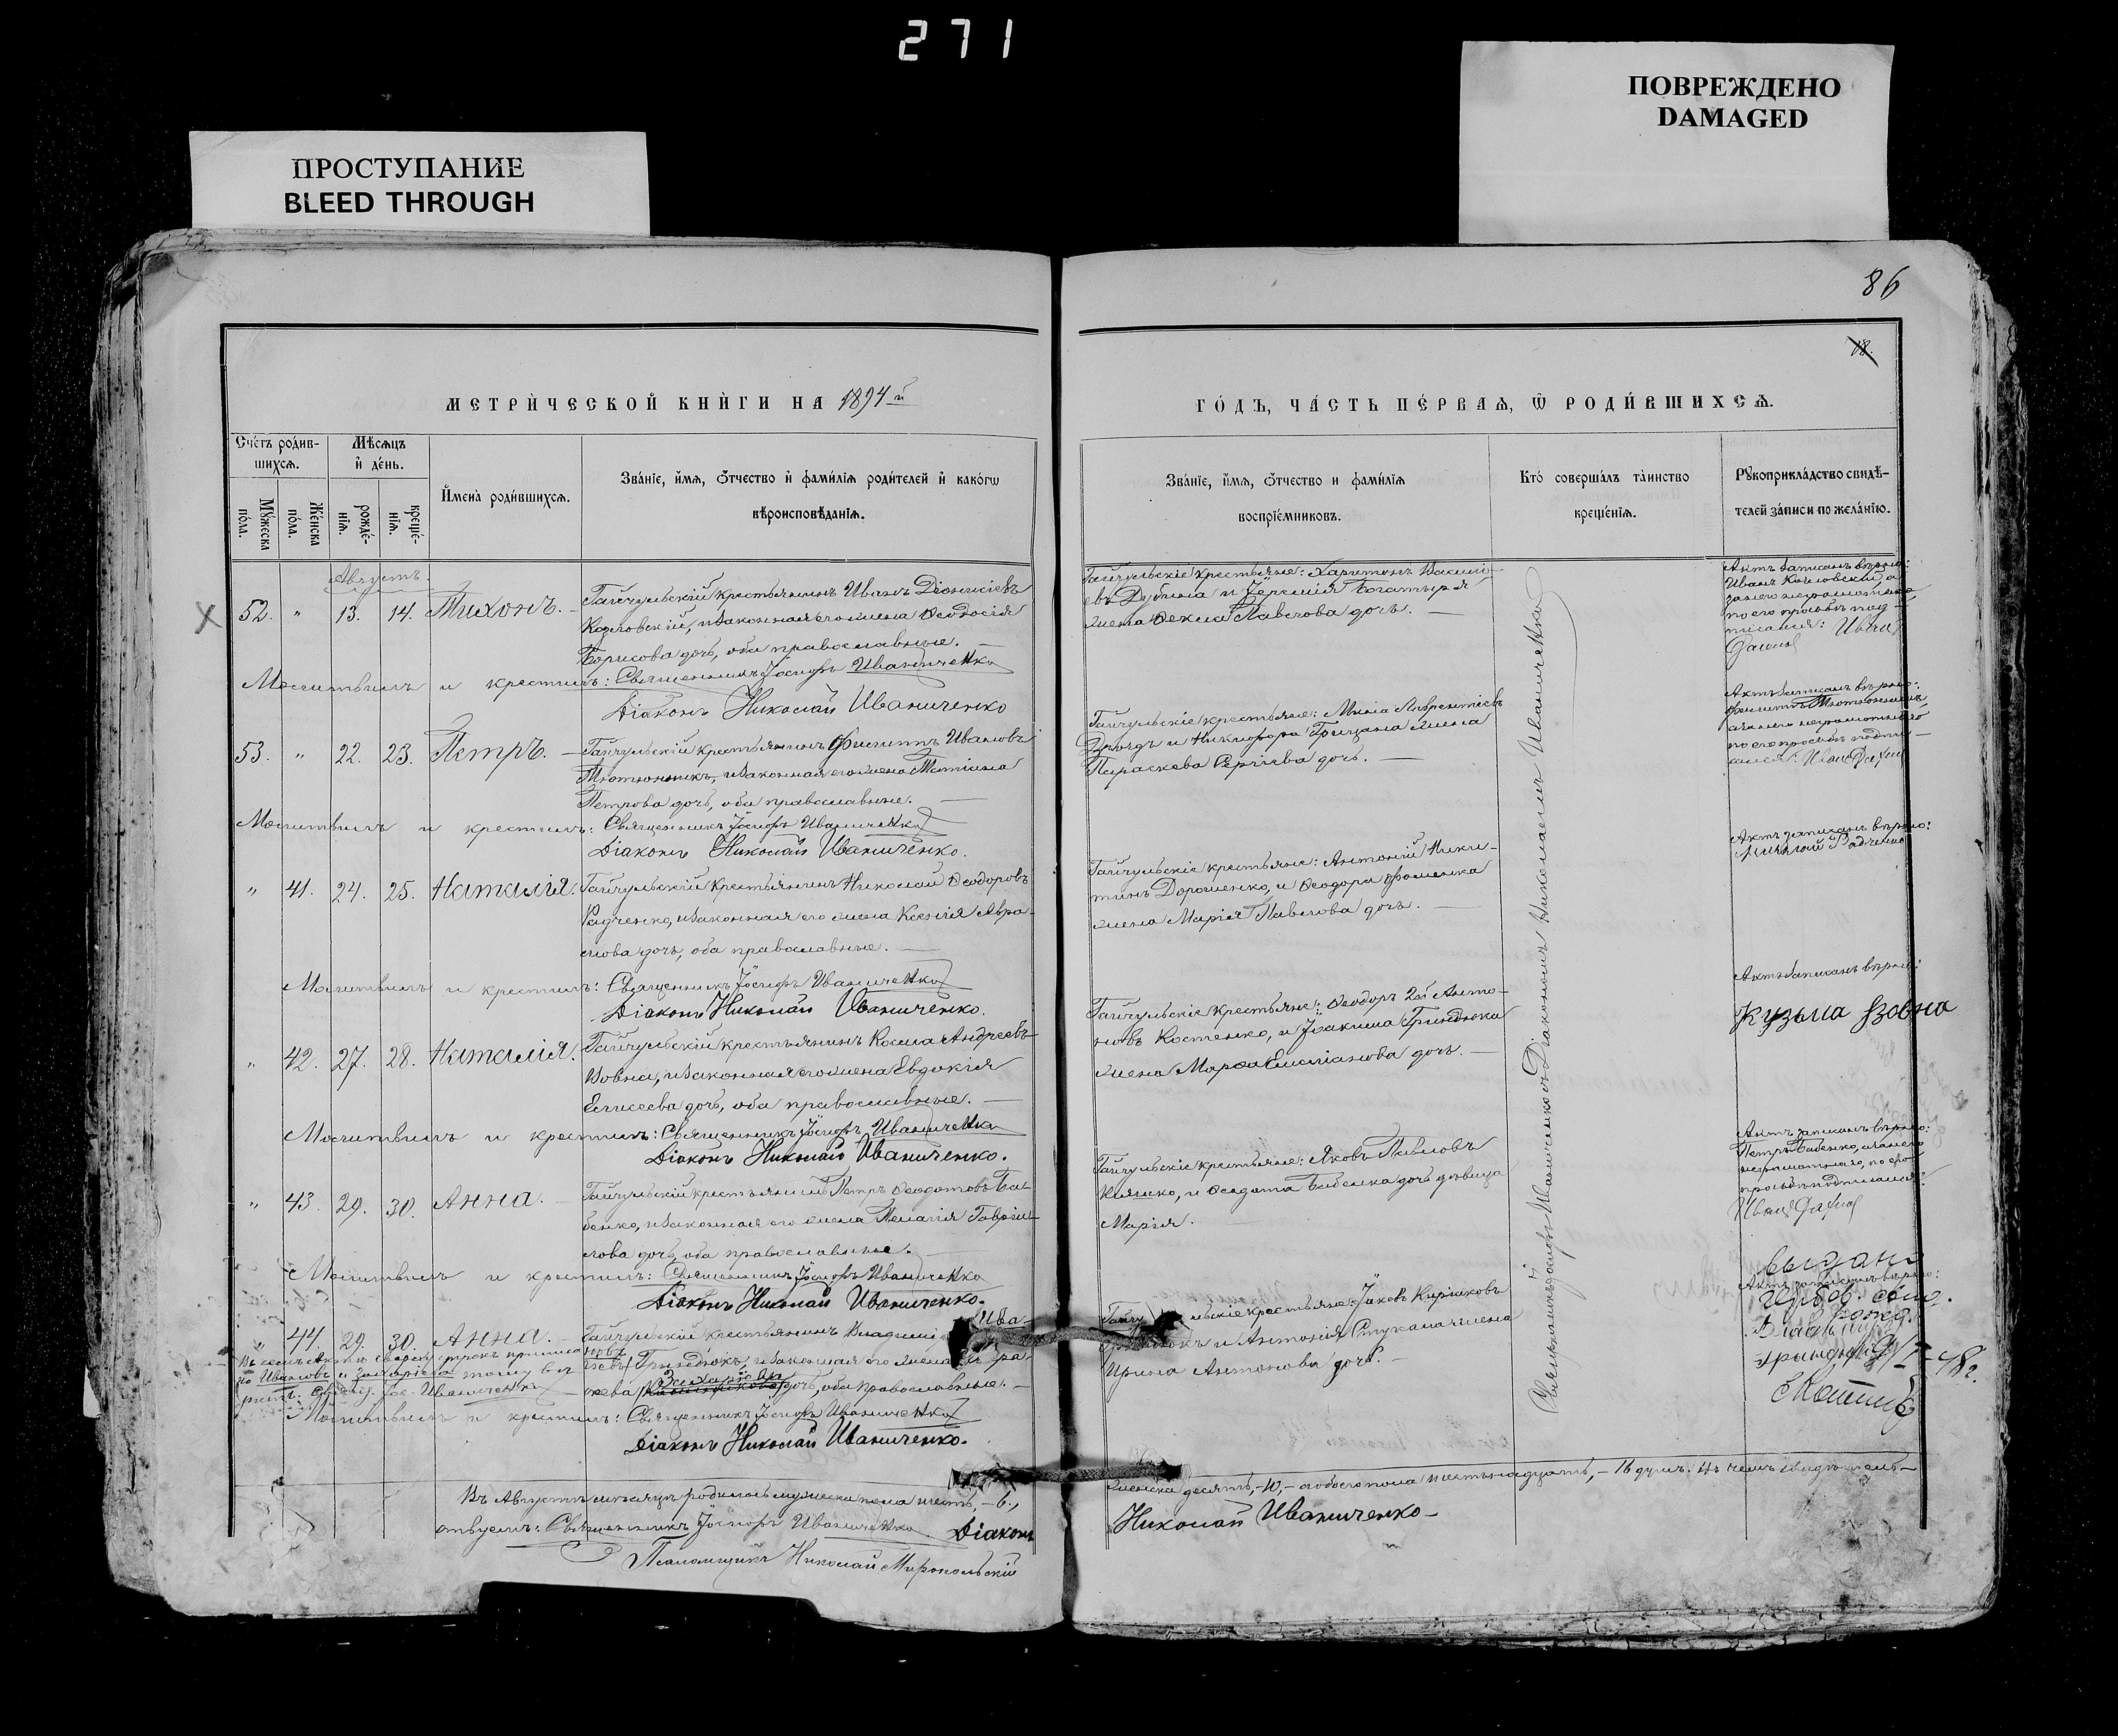 271
ПОВРЕЖДЕНО
DAMAGED
ПРОСТУПАНИЕ
BLEED THROUGH
86
18.
МЕТРИ́ЧЕСКОЙ КНИ́ГИ НА 1894 й
ГО́ДЪ, ЧА́СТЬ ПЕ́РВАѦ, Ѡ РОДИ́ВШИХСѦ.
Сче́тъ роди́в-
шихсѧ.
Мѣ́сѧцъ
и҆ де́нь.
Мꙋ́жеска
по́ла.
Же́нска
по́ла.
рожде́-
нїѧ.
креще́-
нїѧ.
И҆мена̀ роди́вшихсѧ.
Зва́нїе, и҆́мѧ, ѻ҆́тчество и҆ фами́лїѧ роди́телей и҆ како́гѡ
вѣроисповѣ́данїѧ.
Зва́нїе, и҆́мѧ, ѻ҆́тчество и фами́лїѧ
воспрїе́мниковъ.
Кто̀ соверша́лъ та̀инство
креще́нїѧ.
Рꙋкоприкла́дство свидѣ́-
телей за́писи по жела́нїю.
Августъ.
52. " 13. 14. Тихонъ. Гайчульскій крестьянинъ Иванъ Діонисіевъ
Козловскій, и законная его жена Ѳеодосія
Борисова дочь, оба православные.
Гайчульскіе крестьяне: Харитонъ Василі-
евъ Дубина и Іереміи Богатыря
жена Ѳекла Павлова дочь.
Актъ записанъ вѣрно:
Иванъ Козловскій, а
за него неграмотнаго
по его просьбѣ под-
писался: Иванъ
Молитвилъ и крестилъ: Священникъ Іосифъ Иваниченко
Діаконъ Николай Иваниченко
53. " 22. 23. Петръ. Гайчульскій крестьянинъ Филиппъ Ивановъ
Тютюнникъ, и законная его жена Татіана
Петрова дочь, оба православные.
Гайчульскіе крестьяне: Мина Лаврентіевъ
и Никифора Грицана жена
Параскева Сергіева дочь.
Актъ записанъ вѣрно:
Филиппъ Тютюнникъ,
а за него неграмотнаго
по его просьбѣ подпи-
сался: Иванъ
Молитвилъ и крестилъ: Священникъ Іосифъ Иваниченко
Діаконъ Николай Иваниченко.
" 41. 24. 25. Наталія. Гайчульскій крестьянинъ Николай Ѳеодоровъ
Радченко, и законная его жена Ксенія Авра-
мова дочь, оба православные.
Гайчульскіе крестьяне: Антоній Ники-
тинъ Дорошенко, и Ѳеодора Фоменка
жена Марія Павлова дочь.
Актъ записанъ вѣрно:
Николай Радченко
Молитвилъ и крестилъ: Священникъ Іосифъ Иваниченко
Діаконъ Николай Иваниченко.
" 42. 27. 28. Наталія. Гайчульскій крестьянинъ Косма Андреевъ
Вовна, и законная его жена Евдокія
Елисеева дочь, оба православные.
Гайчульскіе крестьяне: Ѳеодоръ 2й Анто-
новъ Костенко, и Іоакима Гриндюка
жена Марѳа Емеліанова дочь.
Актъ записанъ вѣрно:
Кузьма
Молитвилъ и крестилъ: Священникъ Іосифъ Иваниченко
Діаконъ Николай Иваниченко.
" 43. 29. 30. Анна. Гайчульскій крестьянинъ Петръ Ѳеодотовъ Ба-
бенко, и законная его жена Пелагія Гаврі-
лова дочь, оба православные.
Гайчульскіе крестьяне: Яковъ Павловъ
и Ѳеодота Бабенка дочь дѣвица
Марія.
Актъ записанъ вѣрно:
Петръ Бабенко, а за него
неграмотнаго, по его
просьбѣ подписался:
Иванъ
Молитвилъ и крестилъ: Священникъ Іосифъ Иваниченко
Діаконъ Николай Иваниченко.
" 44. 29. 30. Анна. Гайчульскій крестьянинъ Ива-
новъ Гриндюкъ, и законная его жена
Захаріева дочь, оба православные.
крестьяне: Іаковъ Кириковъ
и Антонія Стукала жена
Ирина Антонова дочь.
выдано
Актъ записанъ вѣрно:
Молитвилъ и крестилъ: Священникъ Іосифъ Иваниченко
Діаконъ Николай Иваниченко.
Священникъ Іосифъ Иваниченко съ Діакономъ Николаемъ Иваниченко
Въ Августѣ мѣсяцѣ родилось мужеска пола шесть, - 6,
женска десять, -10, - обоего пола шестьнадцать, - 16 душъ. Въ чемъ свидѣтель-
ствуемъ: Священникъ Іосифъ Иваниченко Діаконъ
Николай Иваниченко
Псаломщикъ Николай Миропольскій